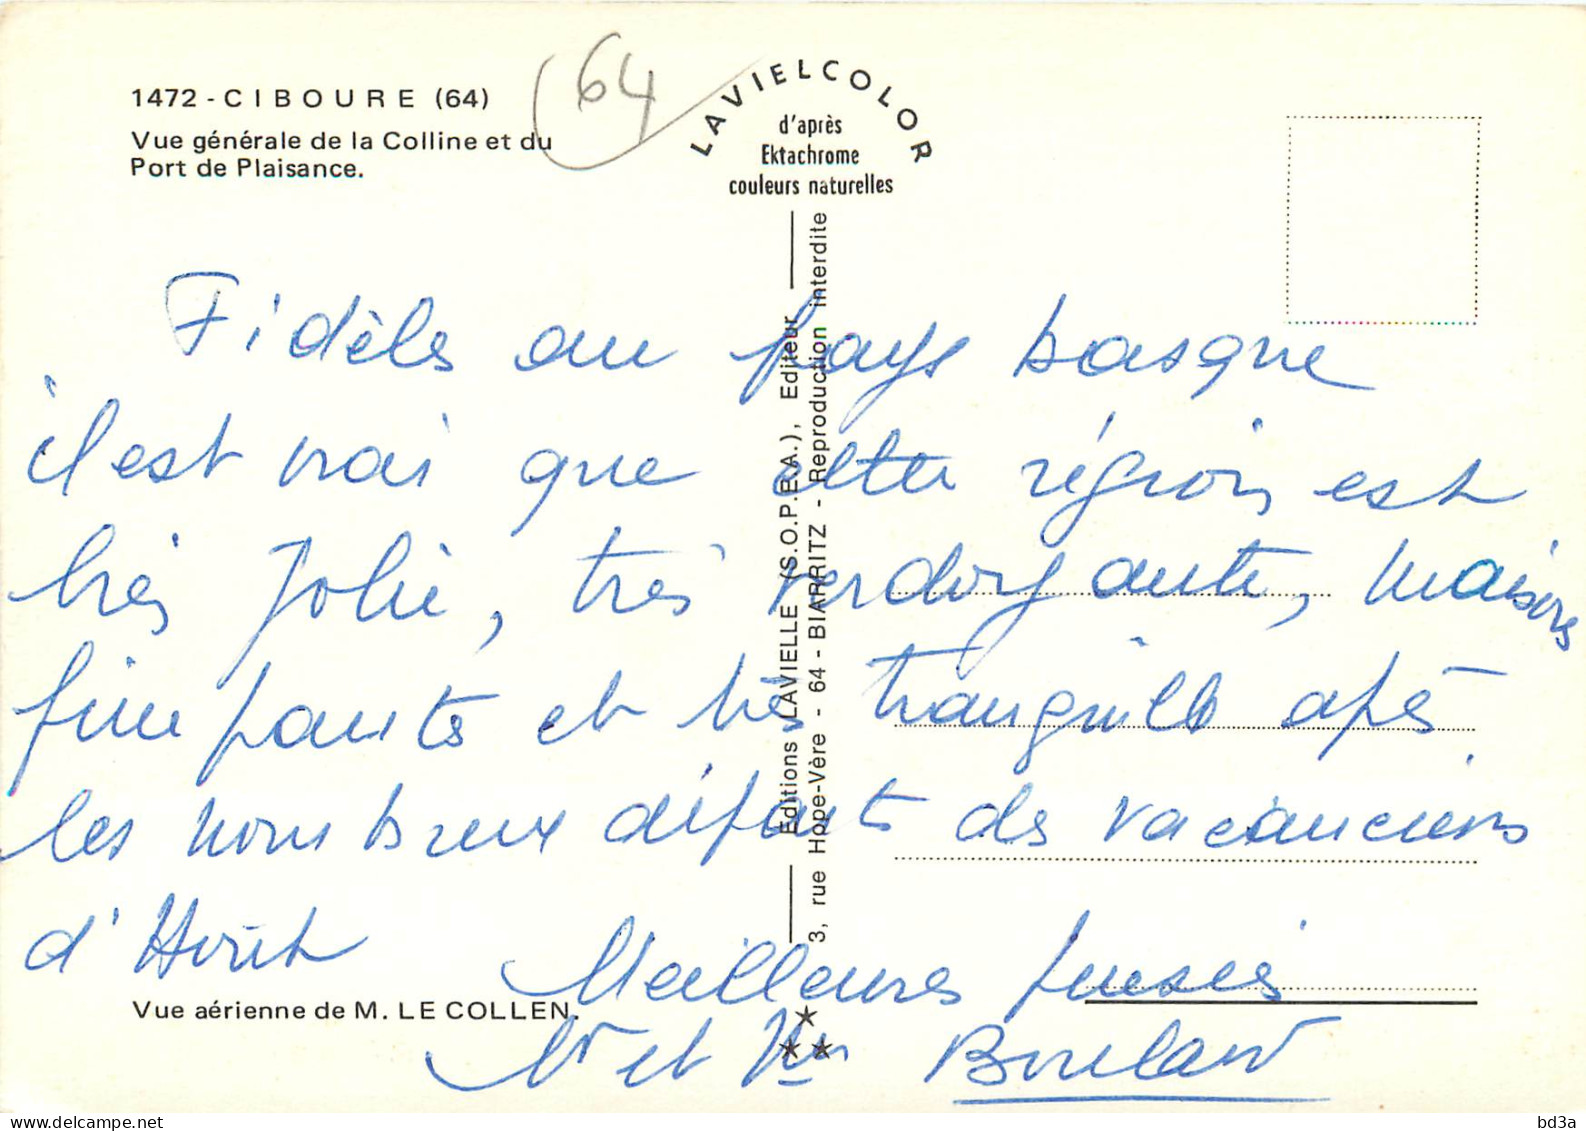 1472 - CIBOURE (64)
Vue générale de la Colline et du
Port de Plaisance.
64
LAVIELCOLOR
d'après
Ektachrome
couleurs naturelles
Editions LAVIELLE (S.O.P.E.A.), Editeur
3, rue Hope-Vère - 64 - BIARRITZ - Reproduction interdite
Fidèles au pays basque
il est vrai que cette région est
très jolie, très verdoyante, maisons
et très tranquille après
les nombreux départs des vacanciers
d'Août
Meilleures pensées
Mr et Mme
Vue aérienne de M. LE COLLEN.
delcampe.net
bd3a